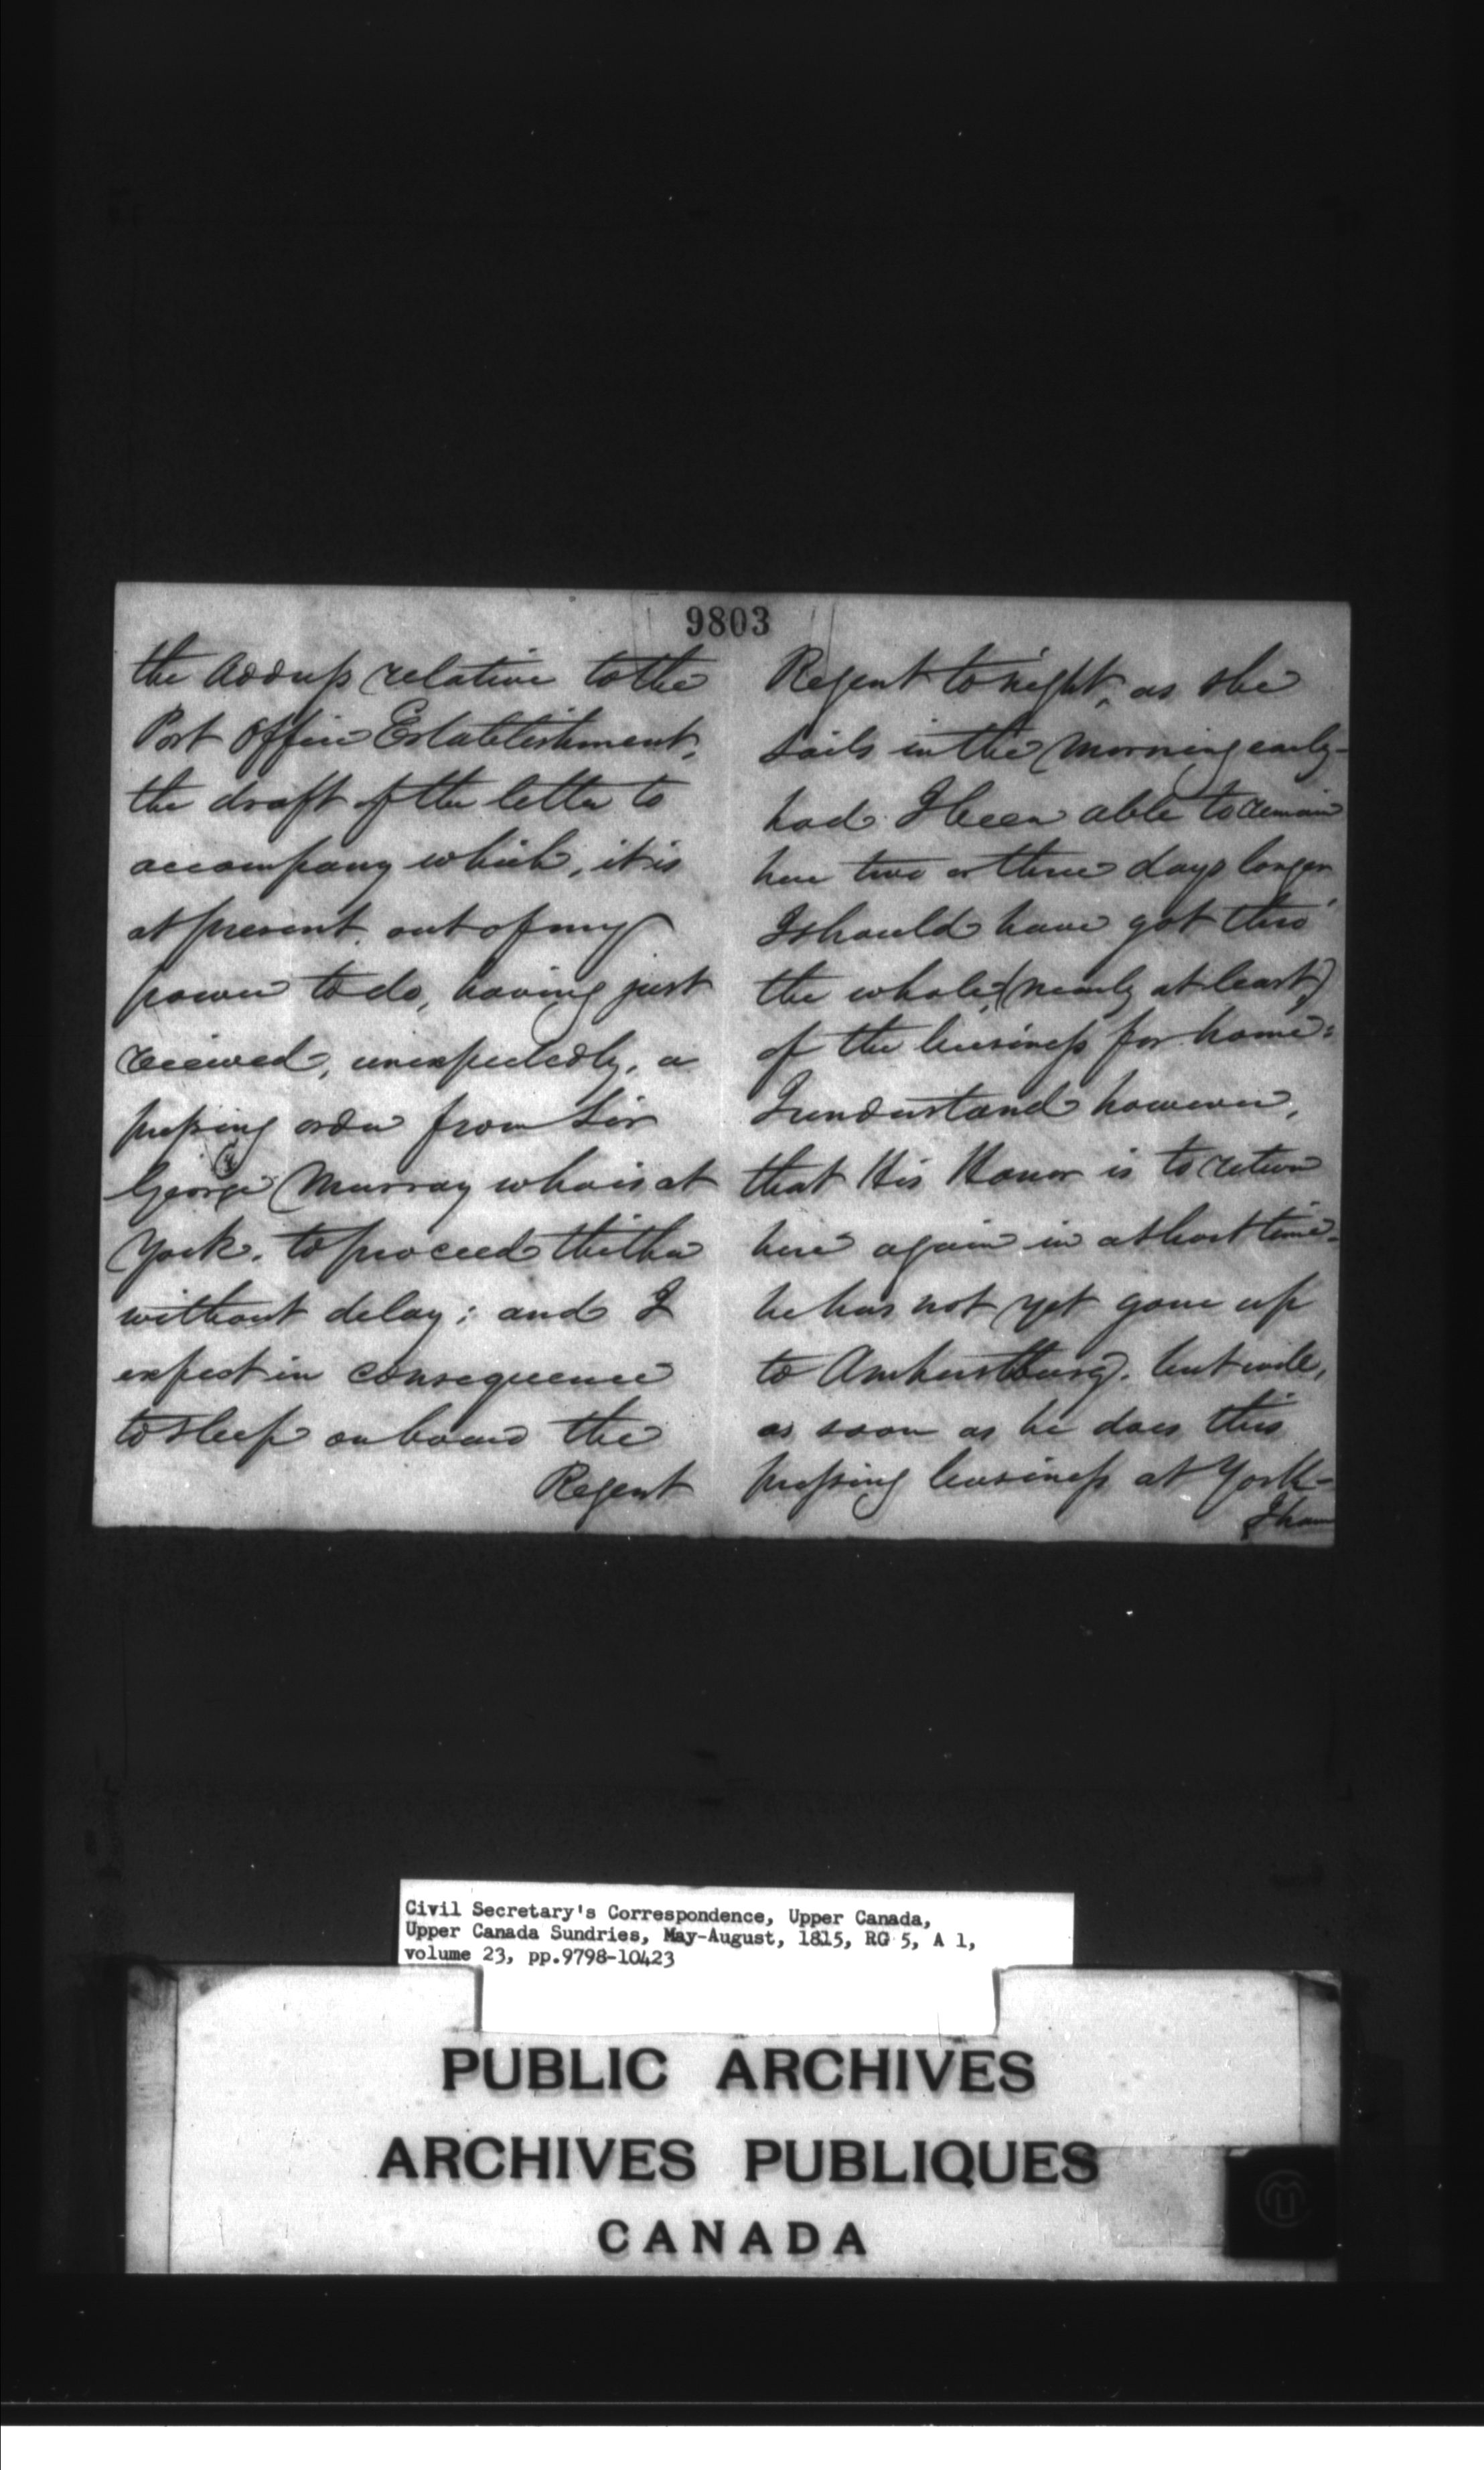 9803
the Address relative to the
Post Office Establishment,
the draft of the letter to
accompany which, it is
at present, out of my
power to do, having just
received, unexpectedly, a
pressing order from Sir
George Murray who is at
York, to proceed thither
without delay; and I
expect in consequence
to sleep on board the
Regent
Regent to night, as she
sails in the morning early-
had I been able to remain
here two or three days longer
I should have got thro'
the whole (nearly at least)
of the business for home:
I understand however,
that His Honor is to return
here again in a short time-
he has not yet gone up
to Amherstburg, but will,
as soon as he does this
pressing business at York-
I have
Civil Secretary's Correspondence, Upper Canada,
Upper Canada Sundries, May-August, 1815, RG 5, A 1,
volume 23, pp.9798-10423
PUBLIC ARCHIVES
ARCHIVES PUBLIQUES
CANADA